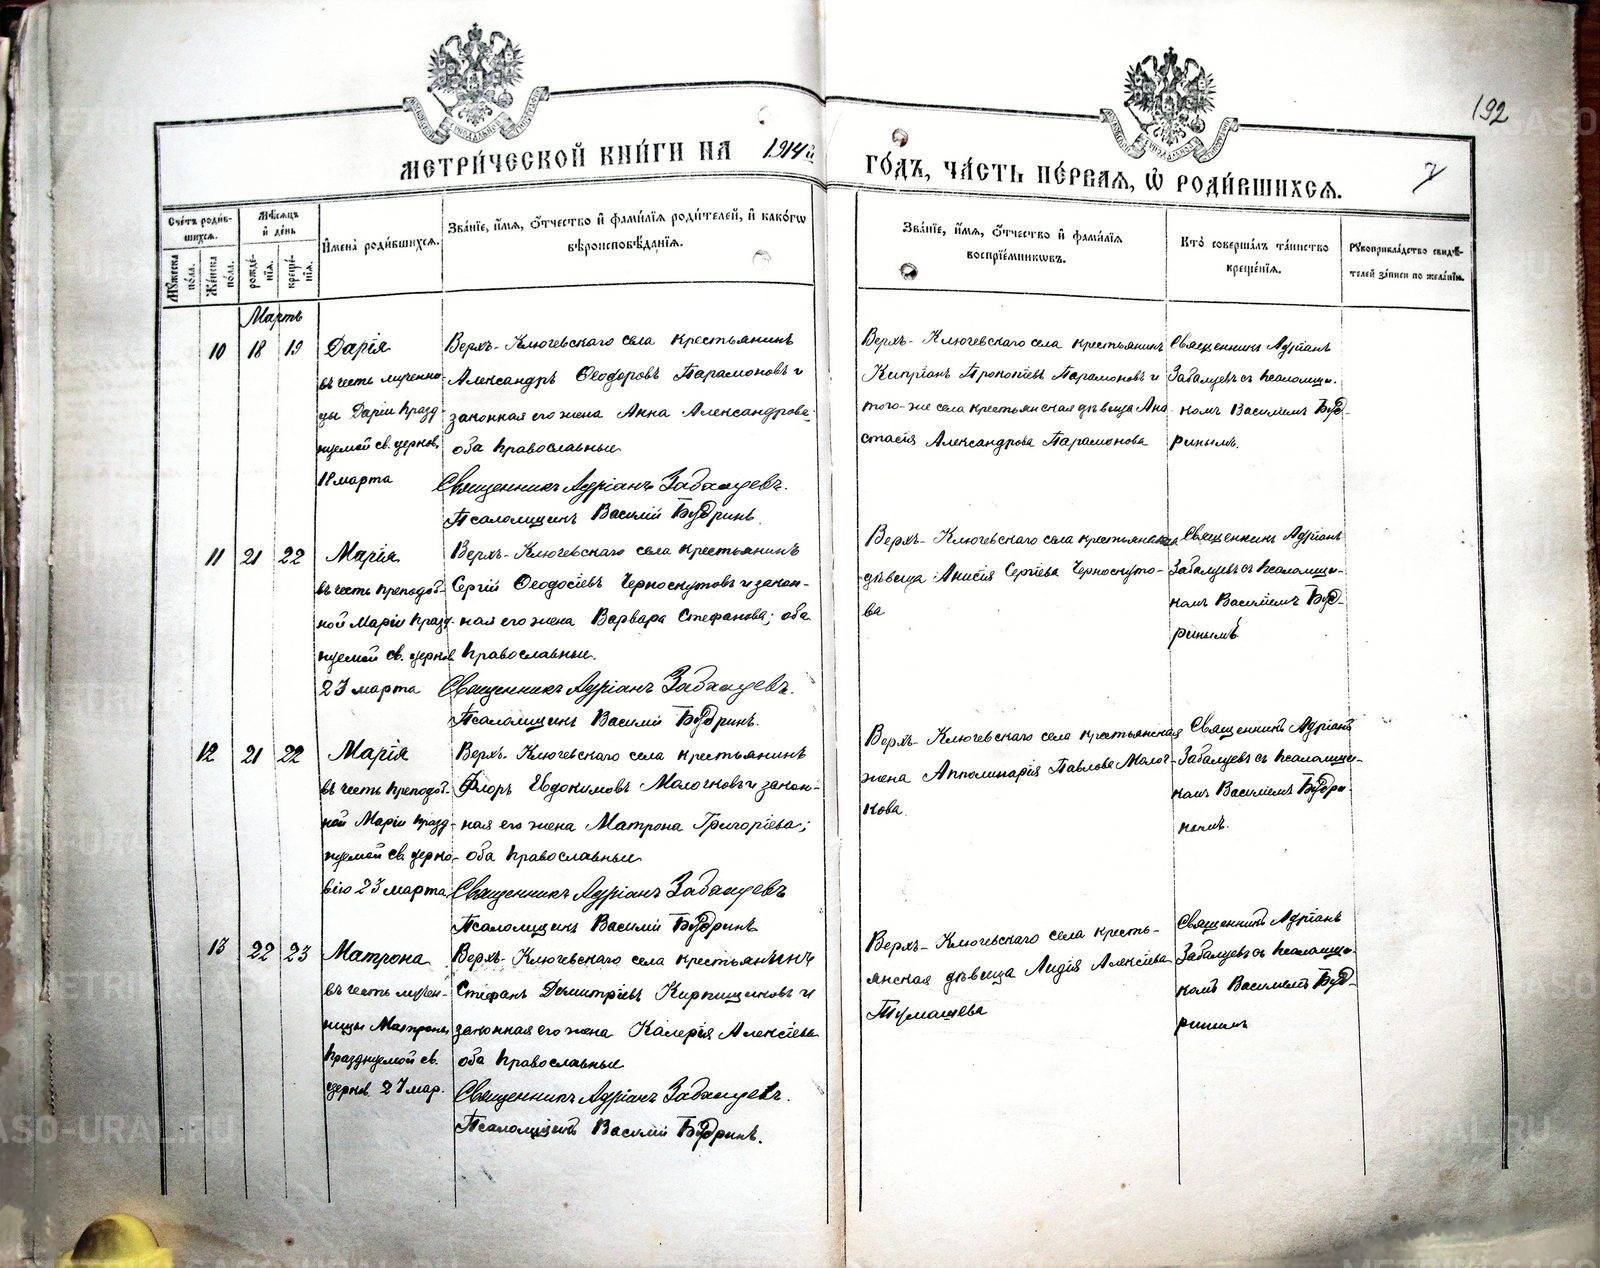 192
МЕТРИ́ЧЕСКОЙ КНИ́ГИ НА 1914й ГО́ДЪ, ЧА́СТЬ ПЕ́РВАЯ, Ѡ РОДИ́ВШИХСЯ.
7
Сче́тъ роди́в-
шихся.
Му́жеска по́ла.
Же́нска по́ла.
Мѣ́сяцъ
и де́нь
рожде́-
нія.
креще́-
нія.
Имена̀ роди́вшихся.
Зва́ніе, и́мя, о́тчество и фами́лія роди́телей, и како́гѡ
вѣроисповѣ́данія.
Зва́ніе, и́мя, о́тчество и фами́лія
воспріе́мниковъ.
Кто̀ соверша́лъ та́инство
креще́нія.
Рукоприкла́дство свидѣ́-
телей за́писи по жела́нію.
Мартъ
10 18 19
Дарія
въ честь мучени-
цы Даріи празд-
нуемой св. церков.
18 марта
Верхъ-Ключевскаго села крестьянинъ
Александръ Ѳеодоровъ Парамоновъ и
законная его жена Анна Александрова
оба православные
Священникъ Адріанъ Забалуевъ.
Псаломщикъ Василій Будринъ.
Верхъ-Ключевскаго села крестьянинъ
Кипріанъ Прокопіевъ Парамоновъ и
того-же села крестьянская дѣвица Ана-
стасія Александрова Парамонова
Священникъ Адріанъ
Забалуевъ съ псаломщи-
комъ Василіемъ Буд-
ринымъ.
11 21 22
Марія
въ честь преподоб-
ной Маріи празд-
нуемой св. церков
23 марта
Верхъ-Ключевскаго села крестьянинъ
Сергій Ѳеодосіевъ Черноскутовъ и закон-
ная его жена Варвара Стефанова; оба
православные.
Священникъ Адріанъ Забалуевъ.
Псаломщикъ Василій Будринъ.
Верхъ-Ключевскаго села крестьянская
дѣвица Анисія Сергіева Черноскуто-
ва
Священникъ Адріанъ
Забалуевъ съ псаломщи-
комъ Василіемъ Буд-
ринымъ
12 21 22
Марія
въ честь преподоб-
ной Маріи празд-
нуемой св. церко-
вію 23 марта
Верхъ-Ключевскаго села крестьянинъ
Флоръ Евдокимовъ Молочковъ и закон-
ная его жена Матрона Григоріева;
оба православные
Священникъ Адріанъ Забалуевъ
Псаломщикъ Василій Будринъ
Верхъ-Ключевскаго села крестьянская
жена Апполинарія Павлова Молоч-
кова.
Священникъ Адріанъ
Забалуевъ съ псаломщи-
комъ Василіемъ Будри-
нымъ.
13 22 23
Матрона
въ честь мучен-
ницы Матроны
празднуемой св.
церков 27 мар.
Верхъ-Ключевскаго села крестьянинъ
Стефанъ Димитріевъ Кирпищиковъ и
законная его жена Калерія Алексіева
оба православные
Священникъ Адріанъ Забалуевъ.
Псаломщикъ Василій Будринъ.
Верхъ-Ключевскаго села кресть-
янская дѣвица Лидія Алексіева
Тумашева
Священникъ Адріанъ
Забалуевъ съ псаломщи-
комъ Василіемъ Буд-
ринымъ